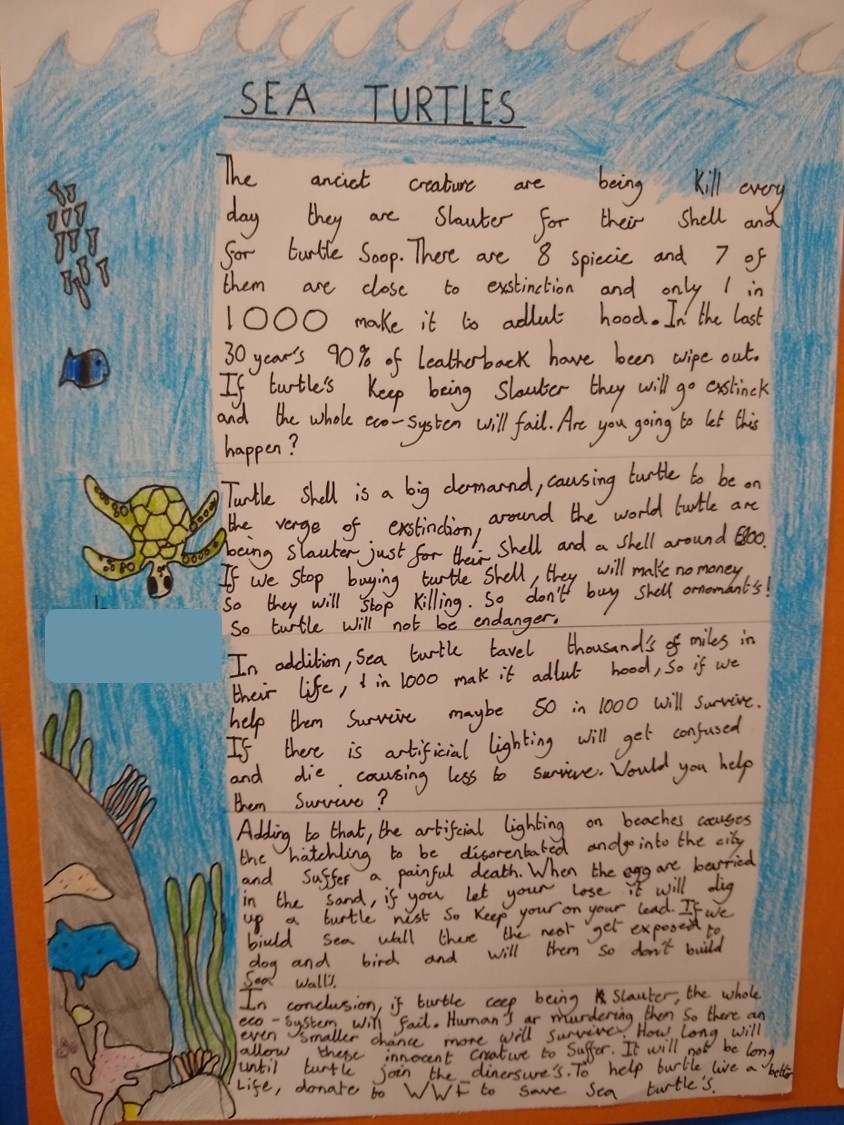 SEA TURTLES
The anciet creature are being Kill every
day they are Slauter for their Shell and
for turtle Soop. There are 8 spiecie and 7 of
them are close to exstinction and only 1 in
1000 make it to adlut hood. In the last
30 year's 90% of leatherback have been wipe out.
If turtle's Keep being Slauter they will go exstinck
and the whole eco-System will fail. Are you going to let this
happen?
Turtle Shell is a big demarnd, causing turtle to be on
the verge of exstinction, around the world turtle are
being Slauter just for their Shell and a Shell around
If we Stop buying turtle Shell, they will make no money
So they will Stop Killing. So don't buy Shell ornomant's!
So turtle will not be endanger.
In addition, Sea turtle tavel thousand's of miles in
their life, 1 in 1000 mak it adlut hood, So if we
help them Survive maybe 50 in 1000 will Survive.
If there is artificial lighting will get confused
and die causing less to survive. Would you help
them Survive?
Adding to that, the artifcial lighting on beaches causes
the hatchling to be disorentated and go into the city
and Suffer a painful death. When the egg are burried
in the Sand, if you let your lose it will dig
up a turtle nest So Keep your on your lead. If we
biuld Sea wall there the nest get exposed to
dog and bird and will them So don't build
Sea Wall's.
In conclusion, if turtle ceep being Slauter, the whole
eco-System will fail. Human's ar murdering then So there an
even Smaller chance more will Survive. How long will
allow these innocent Creature to Suffer. It will not be long
until turtle join the dinersure's. To help turtle live a better
Life, donate to WWF to save Sea turtle's.